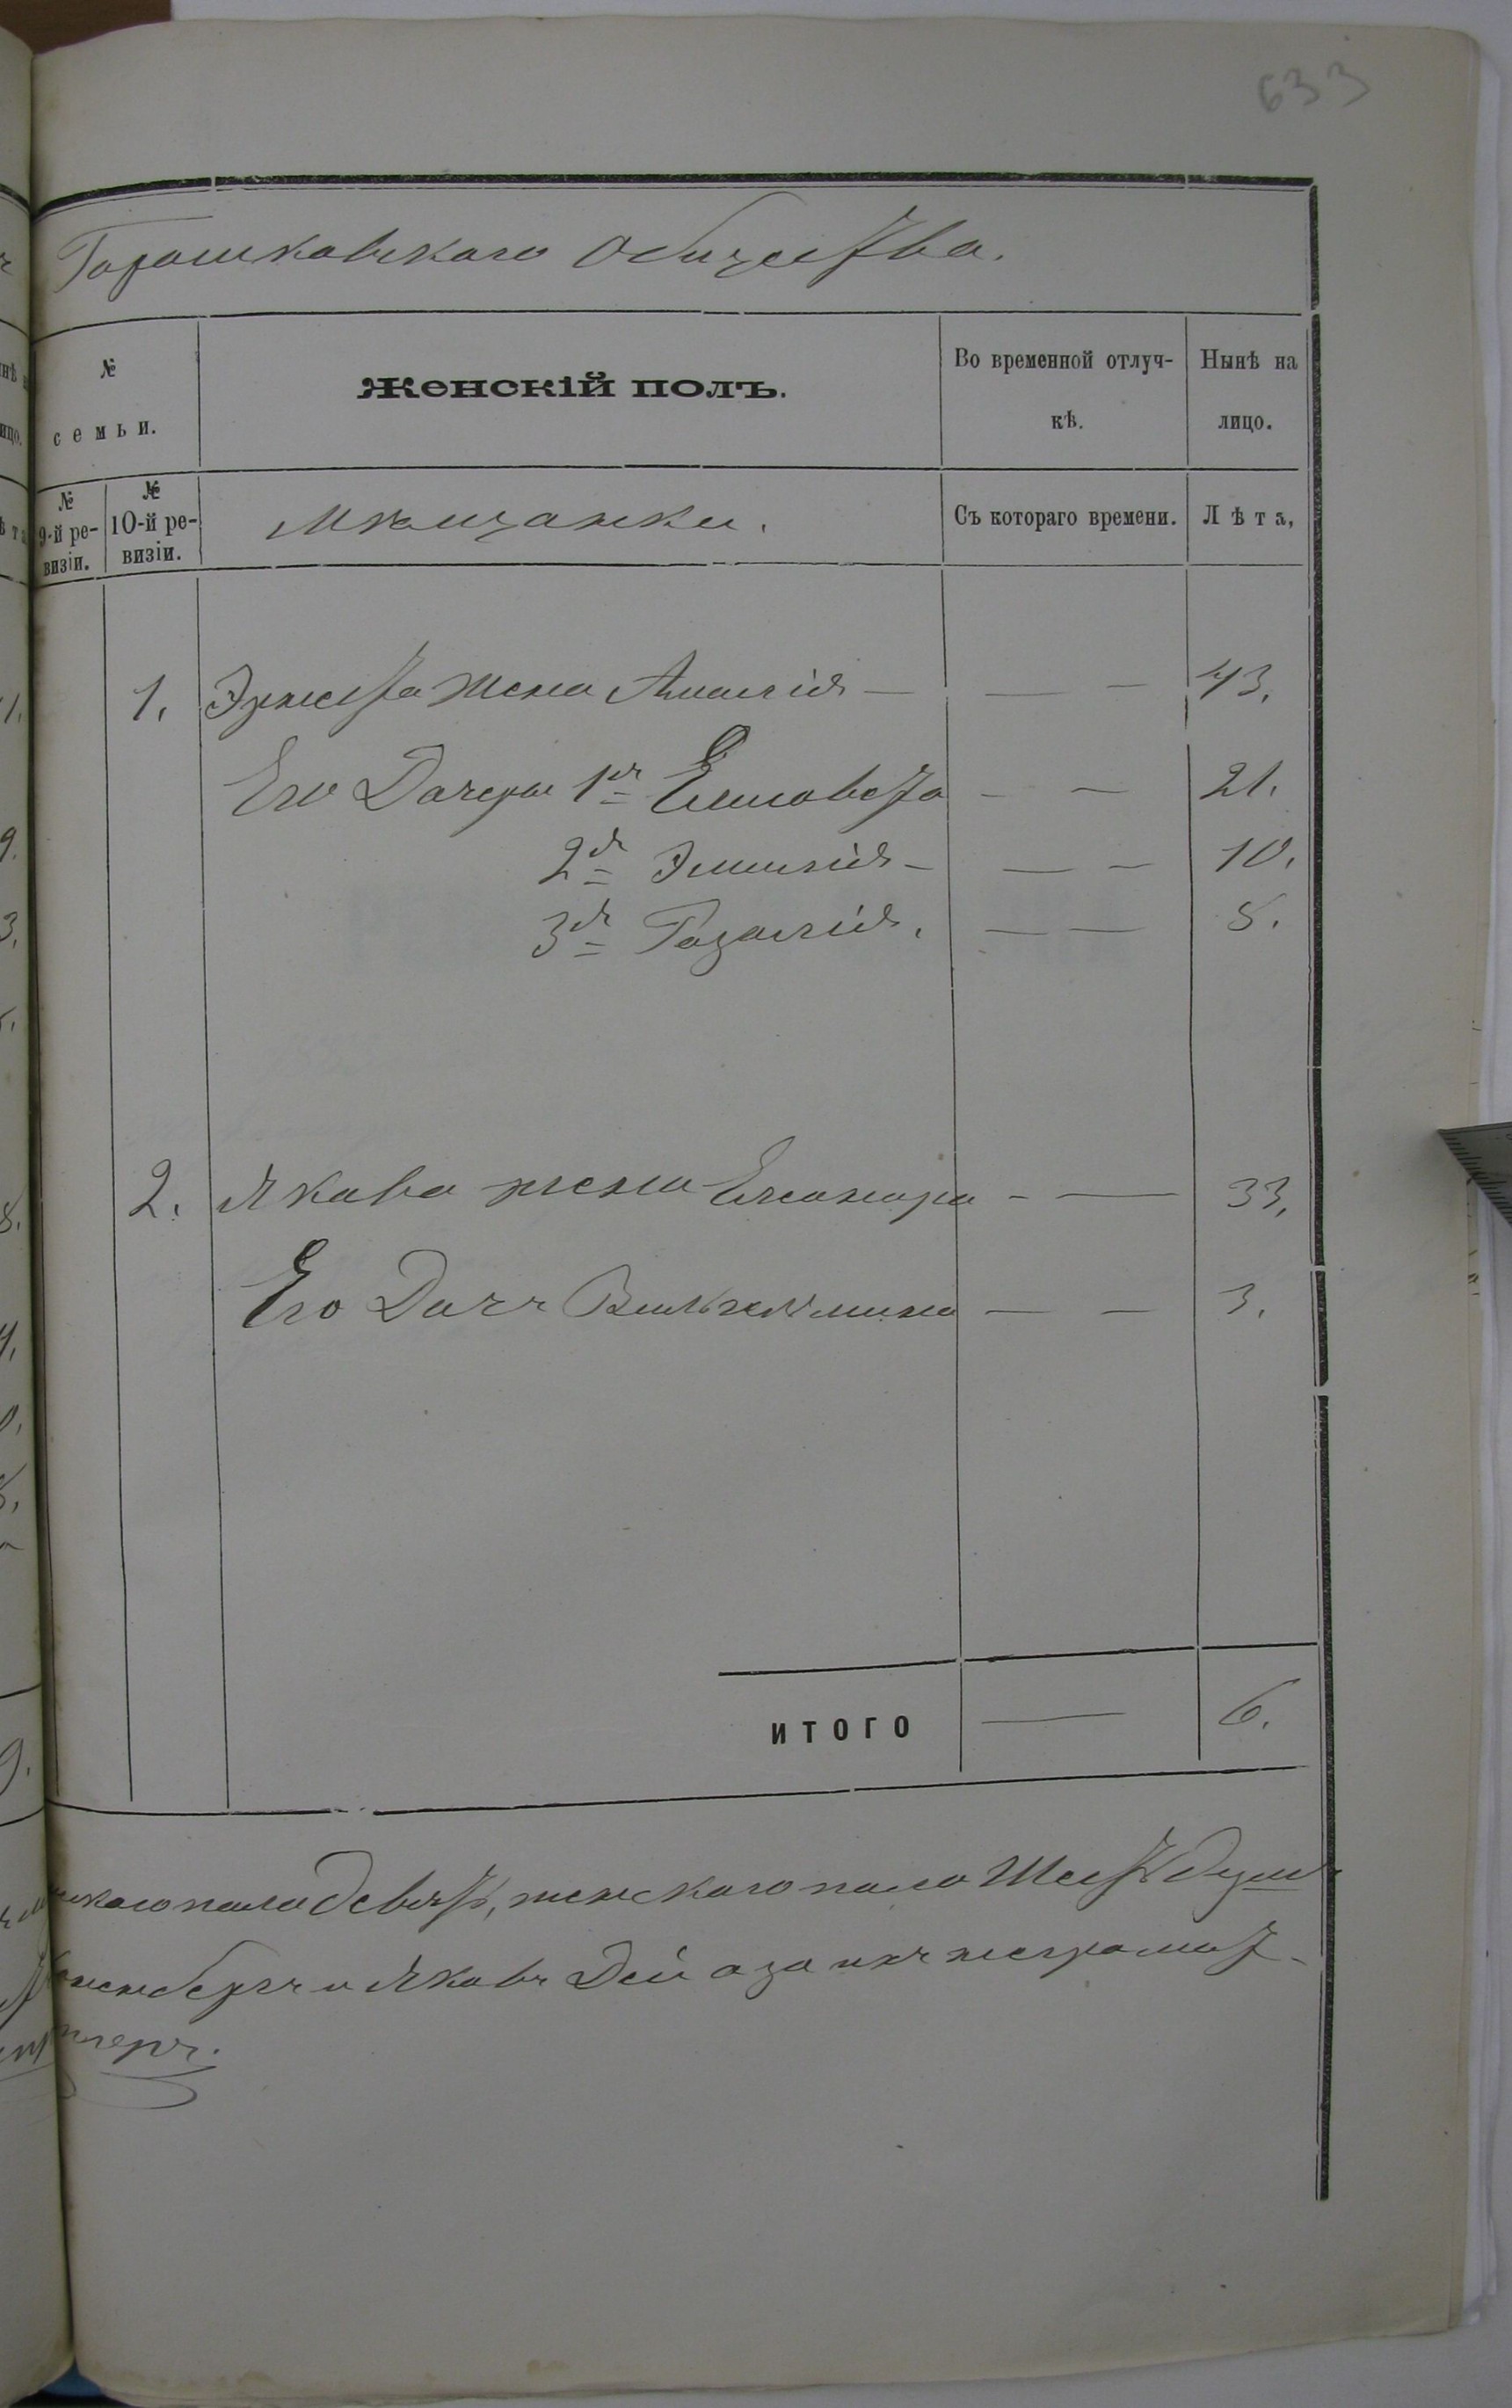 633
Горошковскаго Общества.
№ семьи.
Женскій полъ.
Во временной отлуч-
кѣ.
Нынѣ на
лицо.
№ 9-й ре-
визіи.
№ 10-й ре-
визіи.
Мѣщанки.
Съ котораго времени.
Лѣта,
1. Эрнеста жена Амалія — — — 43.
Его Дочери 1я Елисовета — — 21.
2я Эмилія — — — 10.
3я Розалія. — — 8.
2. Якова жена Елеонора — — 33.
Его Дочь Вильхелмина — — 3.
ИТОГО — 6.
пола девять, женскаго пола Шесть душъ
и Яковъ Дей а за ихъ неграмот-